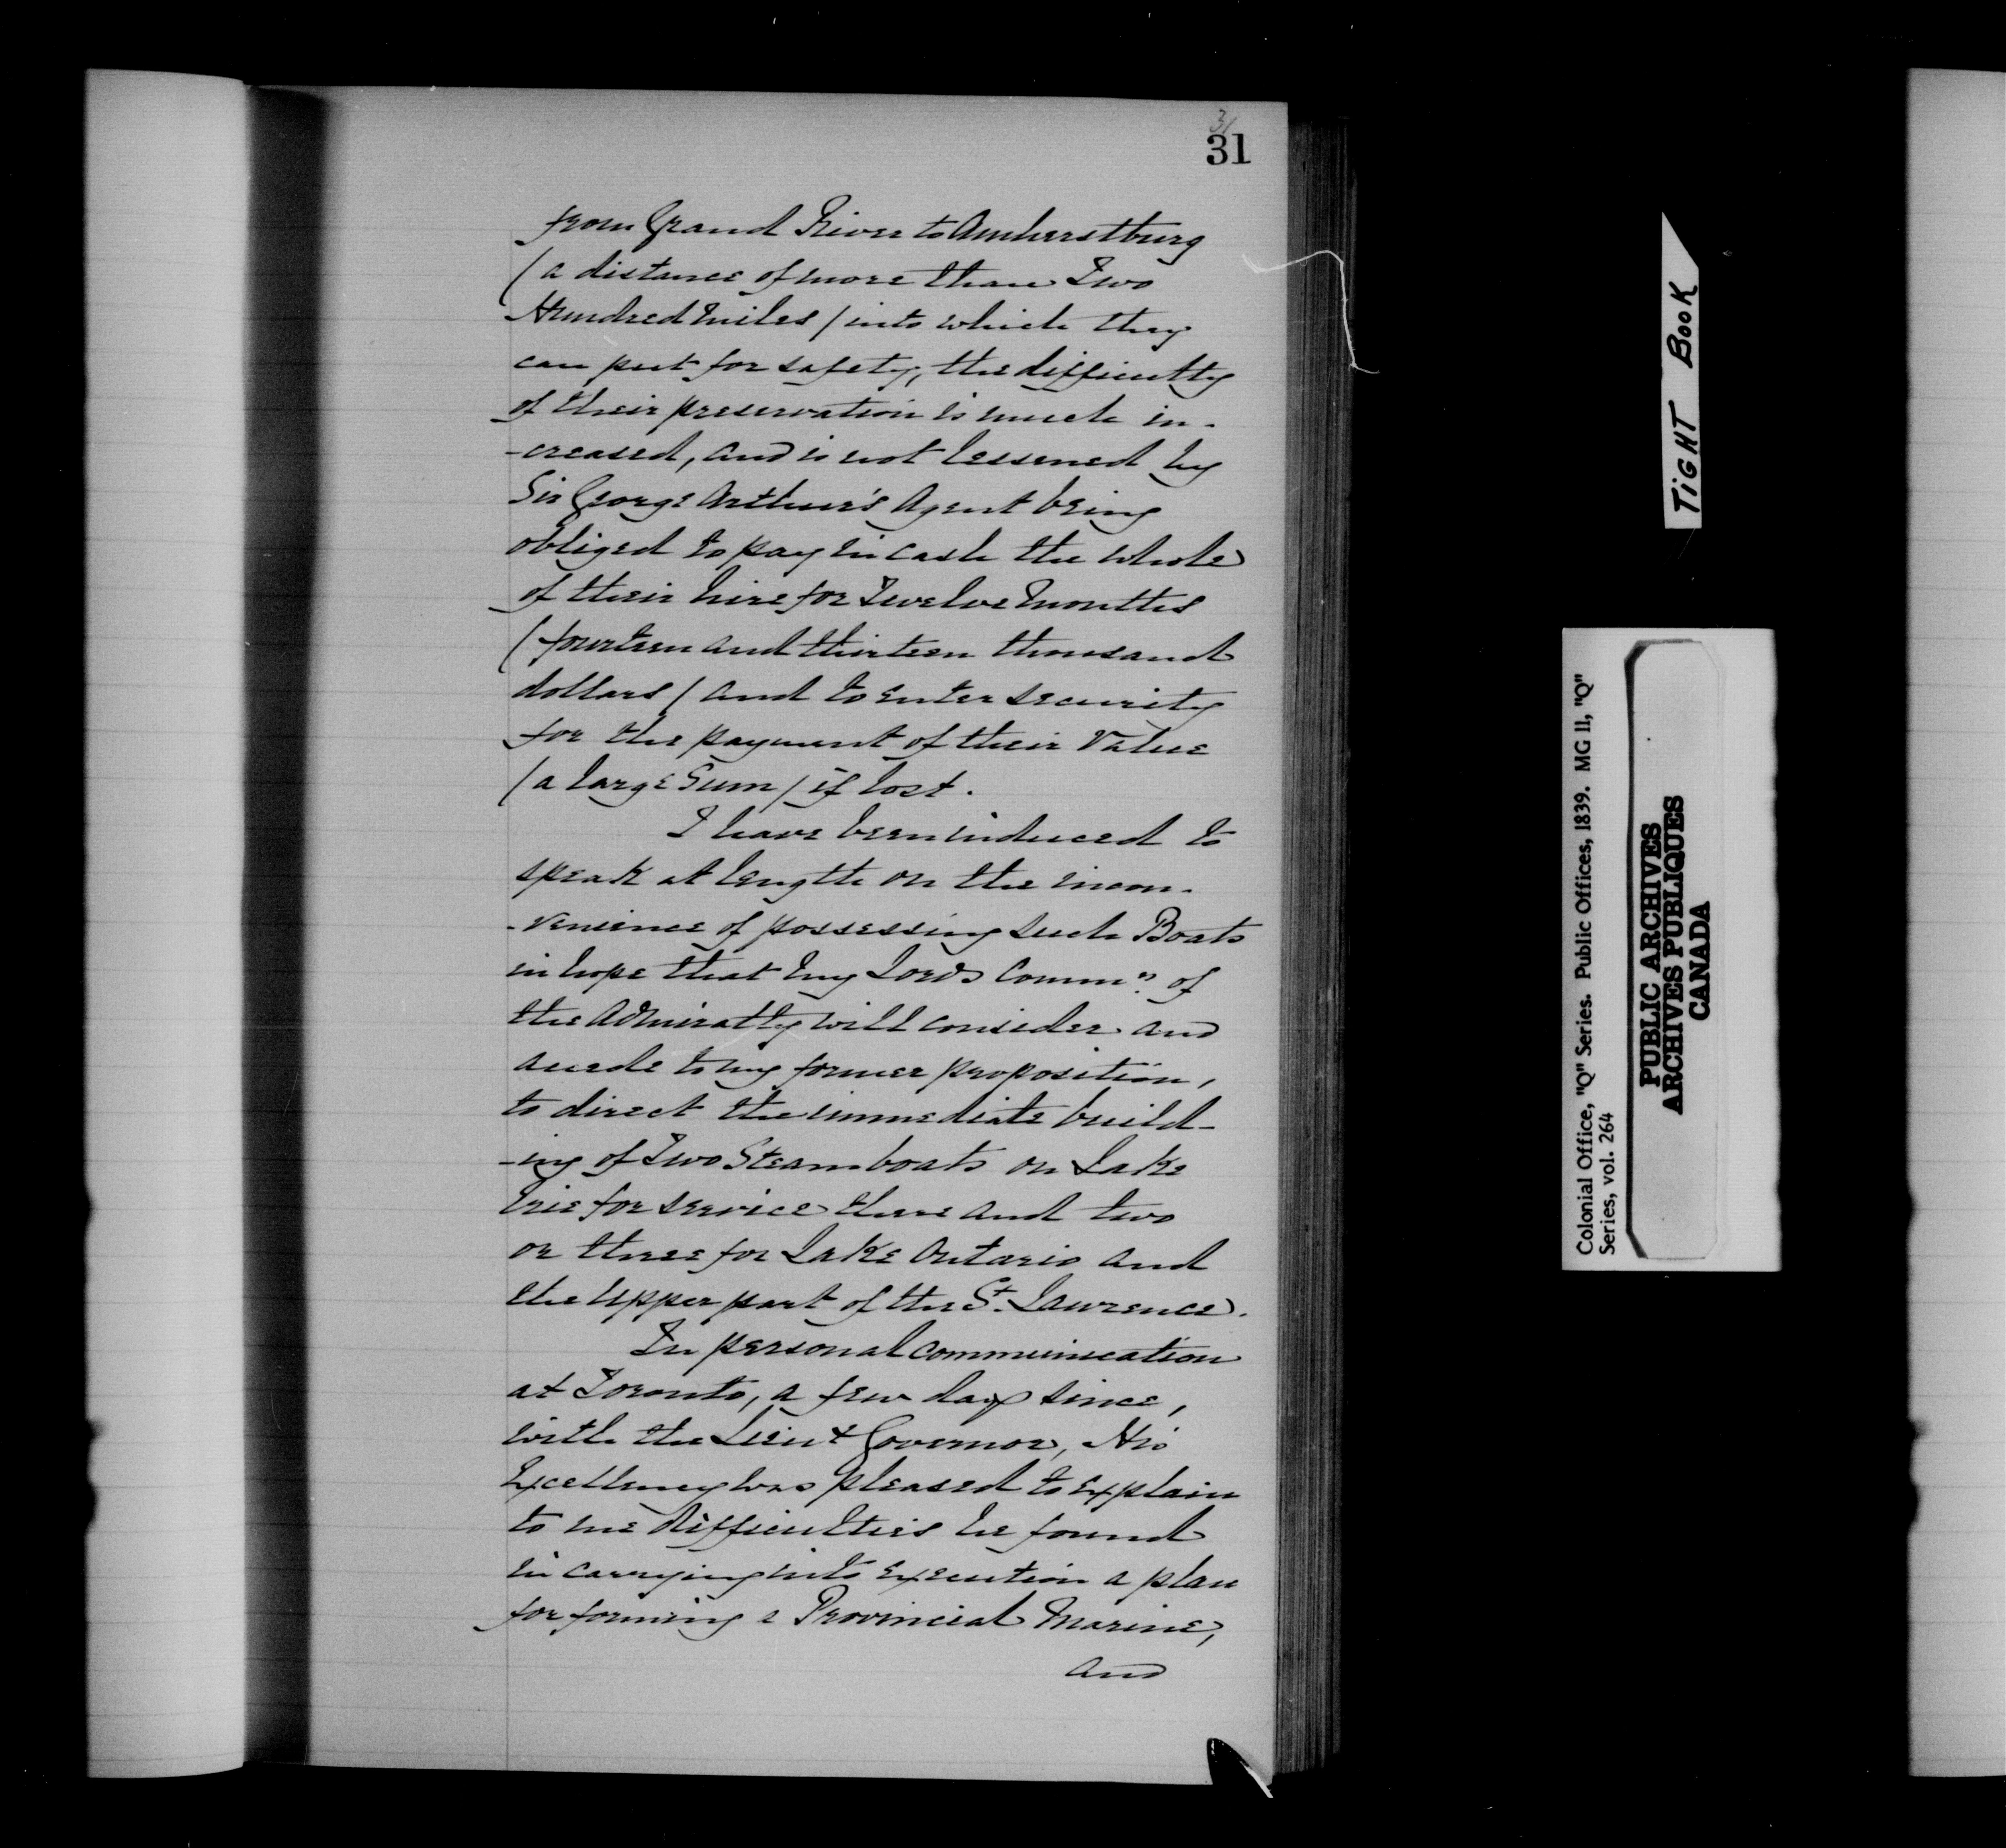 31
31
from Grand River to Amherstburg
(a distance of more than Two
Hundred Miles / into which they
can put for safety, the difficulty
of their preservation is much in-
-creased, and is not lessened by
Sir George Arthur's Agent being
obliged to pay in cash the whole
of their hire for Twelve Months
(fourteen and thirteen thousand
dollars / and to enter security
for the payment of their Value
/ a large Sum / if lost.
I have been induced to
speak at length on the incon-
-venience of possessing such Boats
in hope that my Lords Commrs. of
the Admiralty will consider and
accede to my former proposition,
to direct the immediate build-
-ing of Two Steamboats on Lake
Erie for service there and two
or three for Lake Ontario and
the Upper part of the St. Lawrence.
In personal communication
at Toronto, a few days since,
with the Lieut Governor, His
Excellency was pleased to explain
to me difficulties he found
in carrying into execution a plan
for forming a Provincial Marine,
and
TIGHT BOOK
Colonial Office, "Q" Series. Public Offices, 1839. MG 11, "Q"
Series, vol. 264
PUBLIC ARCHIVES
ARCHIVES PUBLIQUES
CANADA